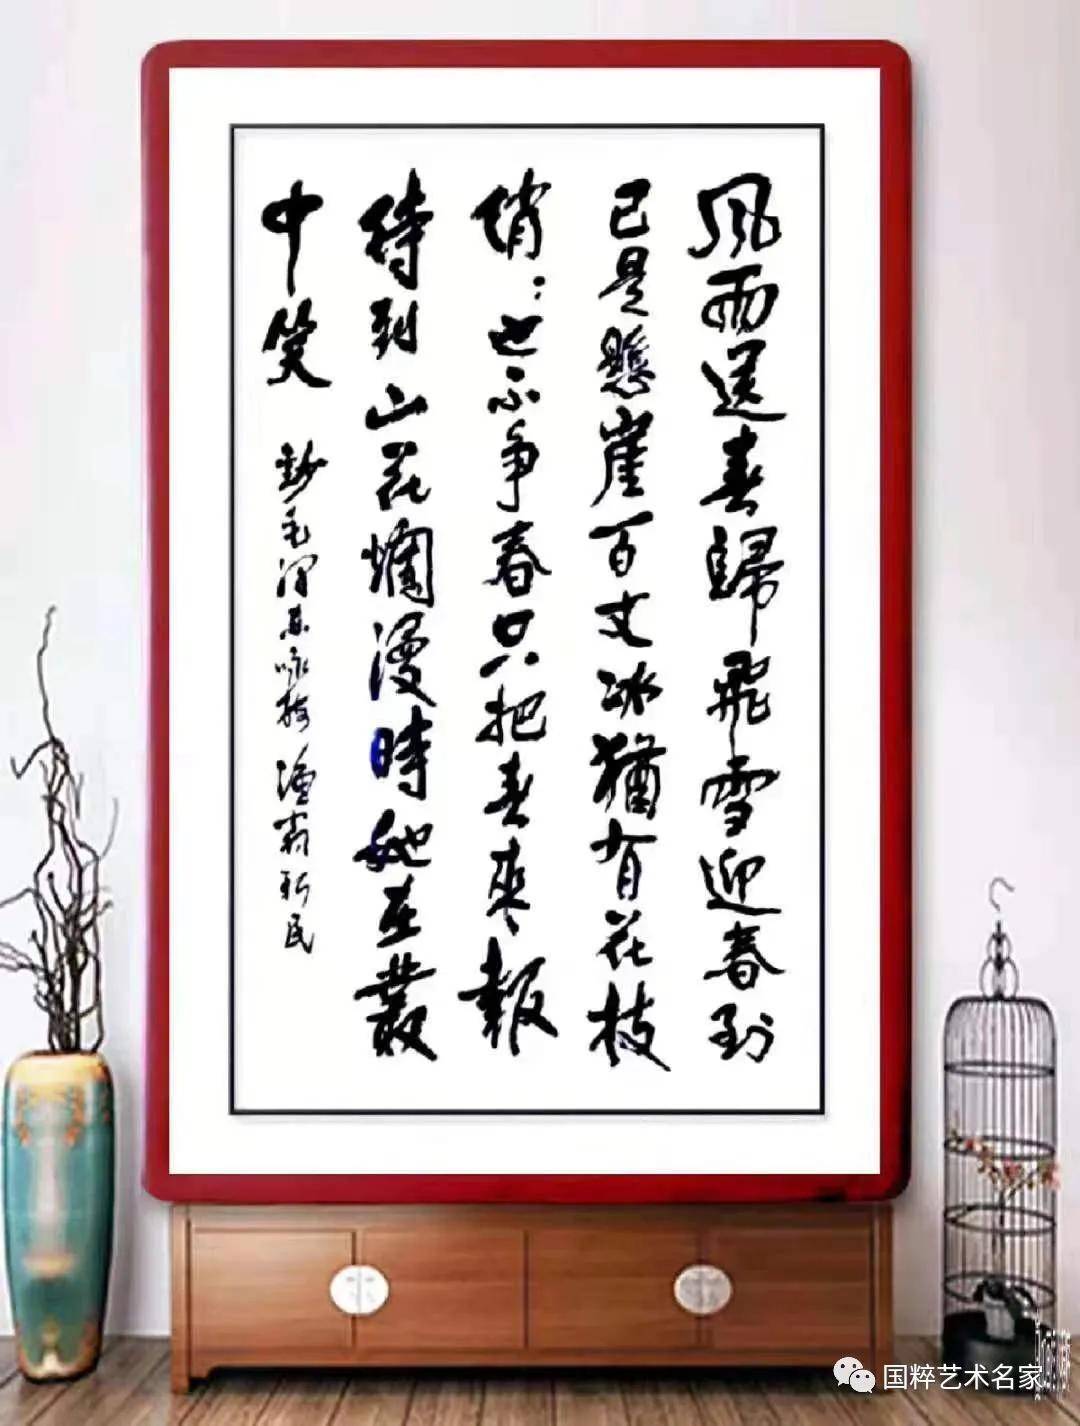 風雨送春歸飛雪迎春到
已是懸崖百丈冰猶有花枝
俏〻也不争春只把春來報
待到山花爛漫時她在叢
中笑 鈔毛泽东咏梅 漁翁新民
国粹艺术名家